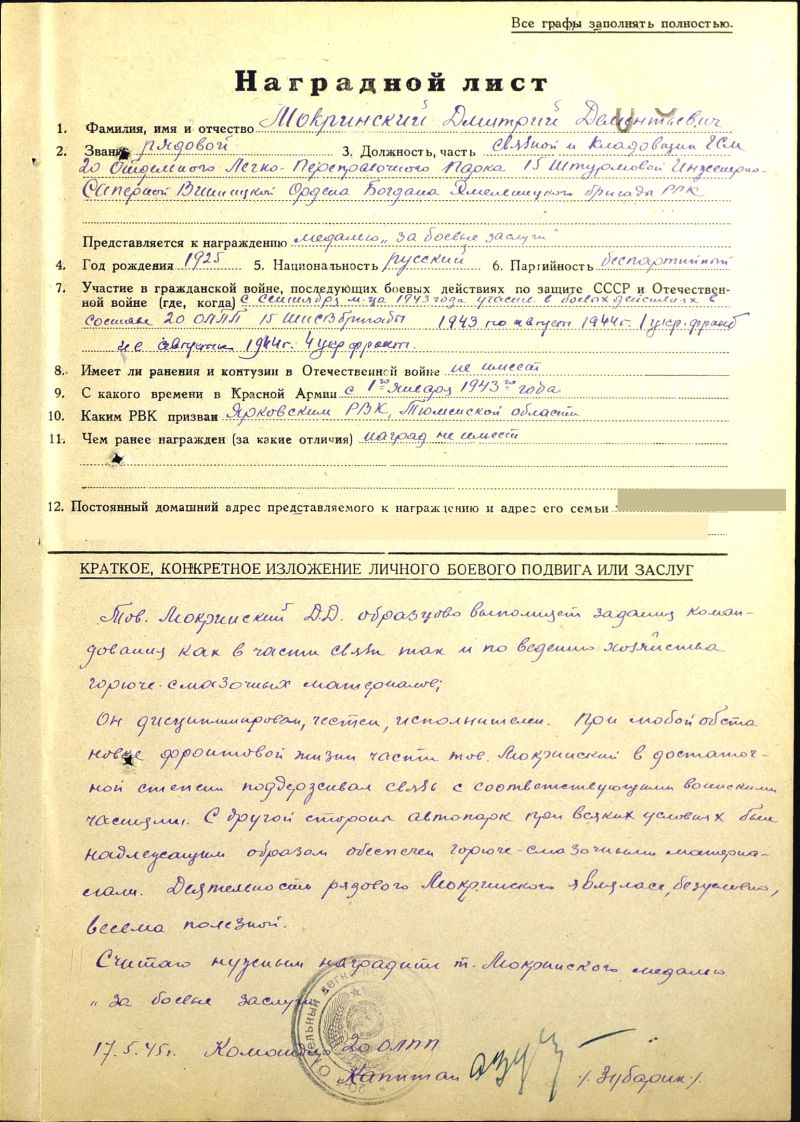 Все графы заполнять полностью.
Наградной лист
1. Фамилия, имя и отчество Мокринский Дмитрий Дементьевич
2. Звание рядовой 3. Должность, часть связной и кладовщик ГСМ
20 Отдельного Легко-Переправочного Парка 15 Штурмовой Инженерно-
Саперной Винницкой Ордена Богдана Хмельницкого бригады РГК
Представляется к награждению медалью „за боевые заслуги"
4. Год рождения 1925 5. Национальность русский 6. Партийность беспартийный
7. Участие в гражданской войне, последующих боевых действиях по защите СССР и Отечествен-
ной войне (где, когда) с сентября м-ца 1943 года участие в боевых действиях в
составе 20 ОЛПП 15 ШИСБбригады 1943 по август 1944 г. 1 укр. фронт
и с августа 1944г. 4 укр фронт.
8. Имеет ли ранения и контузии в Отечественной войне не имеет
9. С какого времени в Красной Армии с 1го января 1943го года
10. Каким РВК призван Ярковским РВК, Тюменской области
11. Чем ранее награжден (за какие отличия) наград не имеет
12. Постоянный домашний адрес представляемого к награждению и адрес его семьи
КРАТКОЕ, КОНКРЕТНОЕ ИЗЛОЖЕНИЕ ЛИЧНОГО БОЕВОГО ПОДВИГА ИЛИ ЗАСЛУГ
Тов. Мокринский Д.Д. образцово выполняет задания коман-
дования как в части связи так и по ведению хозяйства
горюче-смазочных материалов;
Он дисциплинирован, честен, исполнителен. При любой обста
новке фронтовой жизни части тов. Мокринский в достаточ-
ной степени поддерживал связь с соответствующими воинскими
частями. С другой стороны автопарк при всяких условиях был
надлежащим образом обеспечен горюче-смазочными материа-
лами. Деятельность рядового Мокринского являлась, безусловно,
весьма полезной.
Считаю нужным наградить т. Мокринского медалью
„за боевые заслуги
17.5.45г. Командир 20 ОЛПП
Капитан /Зубарик/